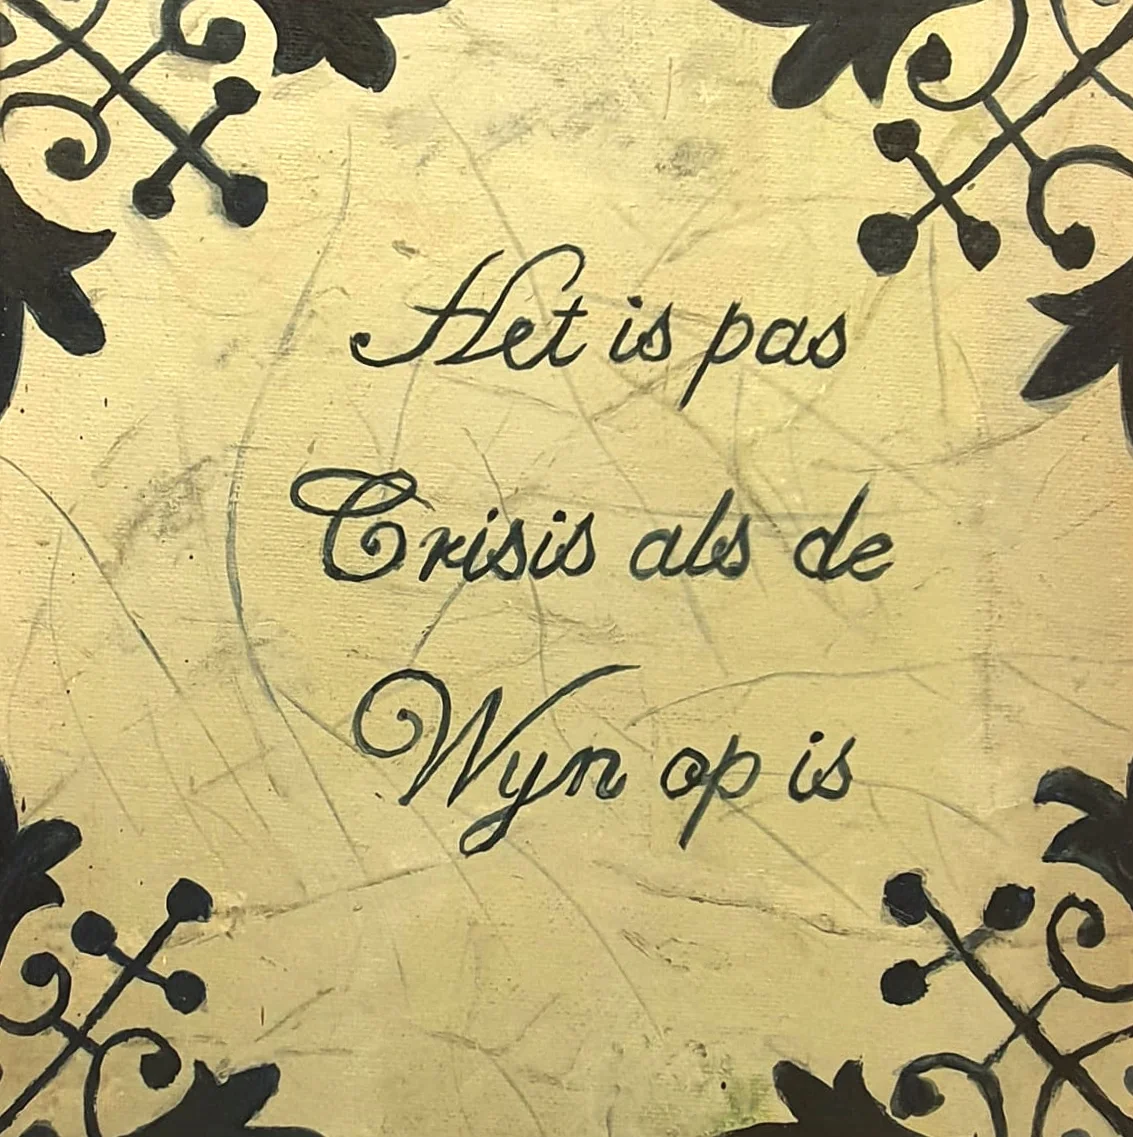 Het is pas
Crisis als de
Wyn op is